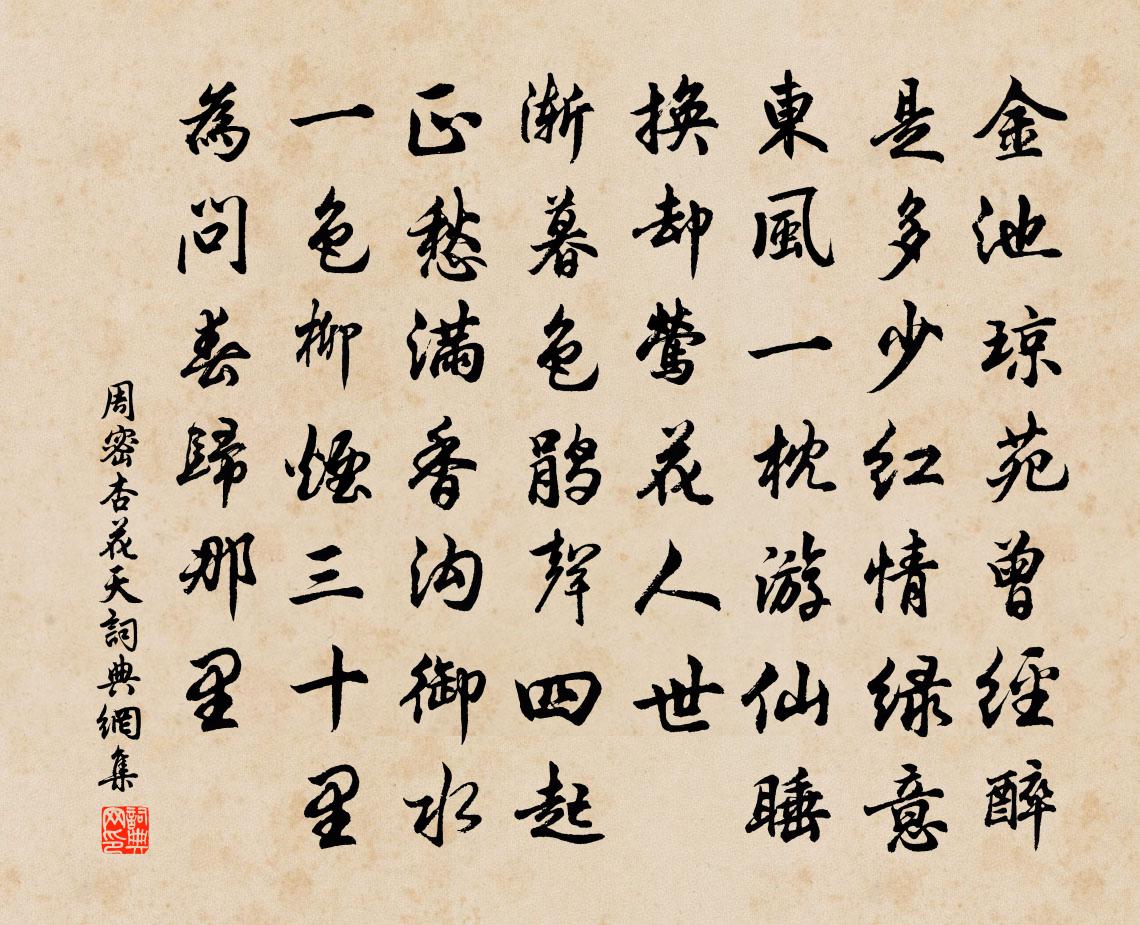 金池琼苑曾經醉
是多少红情緑意
東風一枕游仙睡
換却鶯花人世
漸暮色鹃聲四起
正愁滿香沟御水
一色柳煙三十里
為問春歸那里
周密杏花天詞典網集
詞典网印